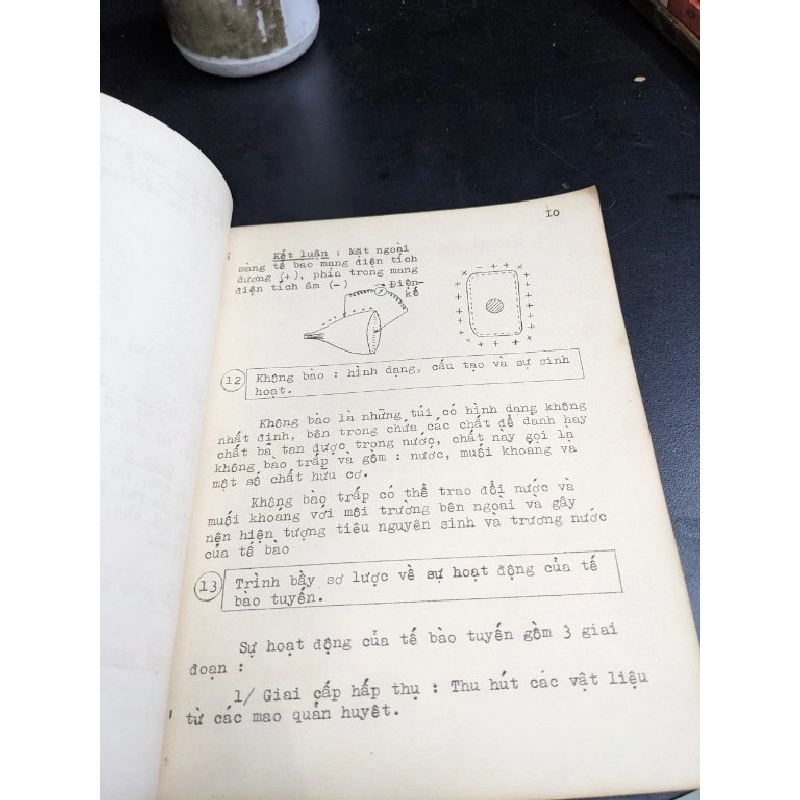 10
Kết luận : Mặt ngoài
màng tế bào mang điện tích
dương (+), phía trong mang
điện tích âm (-)
Điện-
kế
12
Không bào : hình dạng, cấu tạo và sự sinh
hoạt.
Không bào là những túi có hình dạng không
nhất định, bên trong chứa các chất để dành hay
chất bã tan được trong nước, chất này gọi là
không bào trấp và gồm : nước, muối khoáng và
một số chất hữu cơ.
Không bào trấp có thể trao đổi nước và
muối khoáng với môi trường bên ngoài và gây
nên hiện tượng tiêu nguyên sinh và trương nước
của tế bào
13
Trình bầy sơ lược về sự hoạt động của tế
bào tuyến.
Sự hoạt động của tế bào tuyến gồm 3 giai
đoạn :
1/ Giai cấp hấp thụ : Thu hút các vật liệu
từ các mao quản huyết.